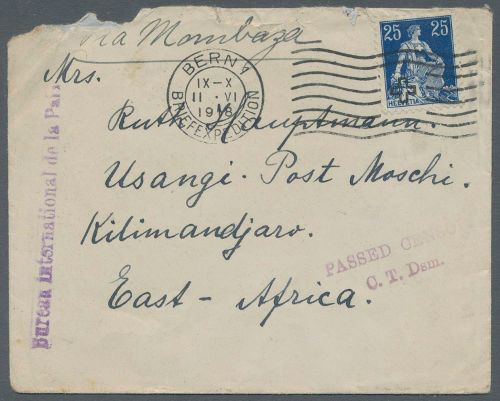 via Mombaza
25 25
HELVETIA
BERN 1
IX-X
11. VI
1916
BRIEFEXPEDITION
Mrs.
Ruth Hauptmann.
Usangi-Post Moschi.
Kilimandjaro.
East-Africa.
Bureau international de la Paix
PASSED CENSO
C. T. Dsm.